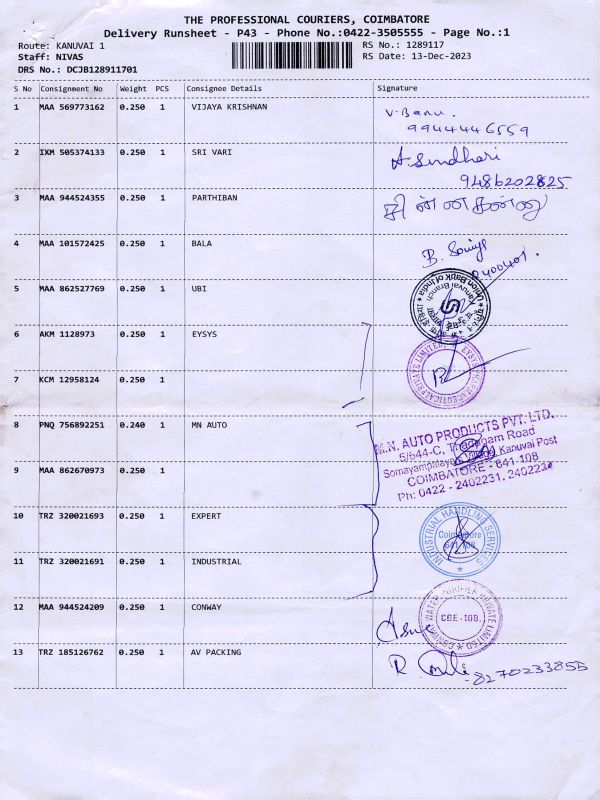 THE PROFESSIONAL COURIERS, COIMBATORE
Delivery Runsheet - P43 - Phone No.:0422-3505555 - Page No.:1
Route: KANUVAI 1 RS No.: 1289117
Staff: NIVAS RS Date: 13-Dec-2023
DRS No.: DCJB128911701
S No Consignment No Weight PCS Consignee Details Signature
1 MAA 569773162 0.250 1 VIJAYA KRISHNAN V. Banu.
9944446559
2 IXM 505374133 0.250 1 SRI VARI A. Sindhari
9486202825
3 MAA 944524355 0.250 1 PARTHIBAN சின்னகண்ணு
4 MAA 101572425 0.250 1 BALA B.
5 MAA 862527769 0.250 1 UBI Union Bank of India Kanuvai Branch
6 AKM 1128973 0.250 1 EYSYS
PRIVATE LIMITED
7 KCM 12958124 0.250 1
8 PNQ 756892251 0.240 1 MN AUTO M.N. AUTO PRODUCTS PVT. LTD.
5/644-C, Thadagam Road
Somayampalayam Village, Kanuvai Post
9 MAA 862670973 0.250 1 COIMBATORE - 641 108
Ph: 0422 - 2402231,
10 TRZ 320021693 0.250 1 EXPERT INDUSTRIAL HANDLING SERVICES
Coimbatore
641 108
11 TRZ 320021691 0.250 1 INDUSTRIAL
12 MAA 944524209 0.250 1 CONWAY WATER PURIFIER PRIVATE LIMITED
CBE - 108.
13 TRZ 185126762 0.250 1 AV PACKING R.
8270233855